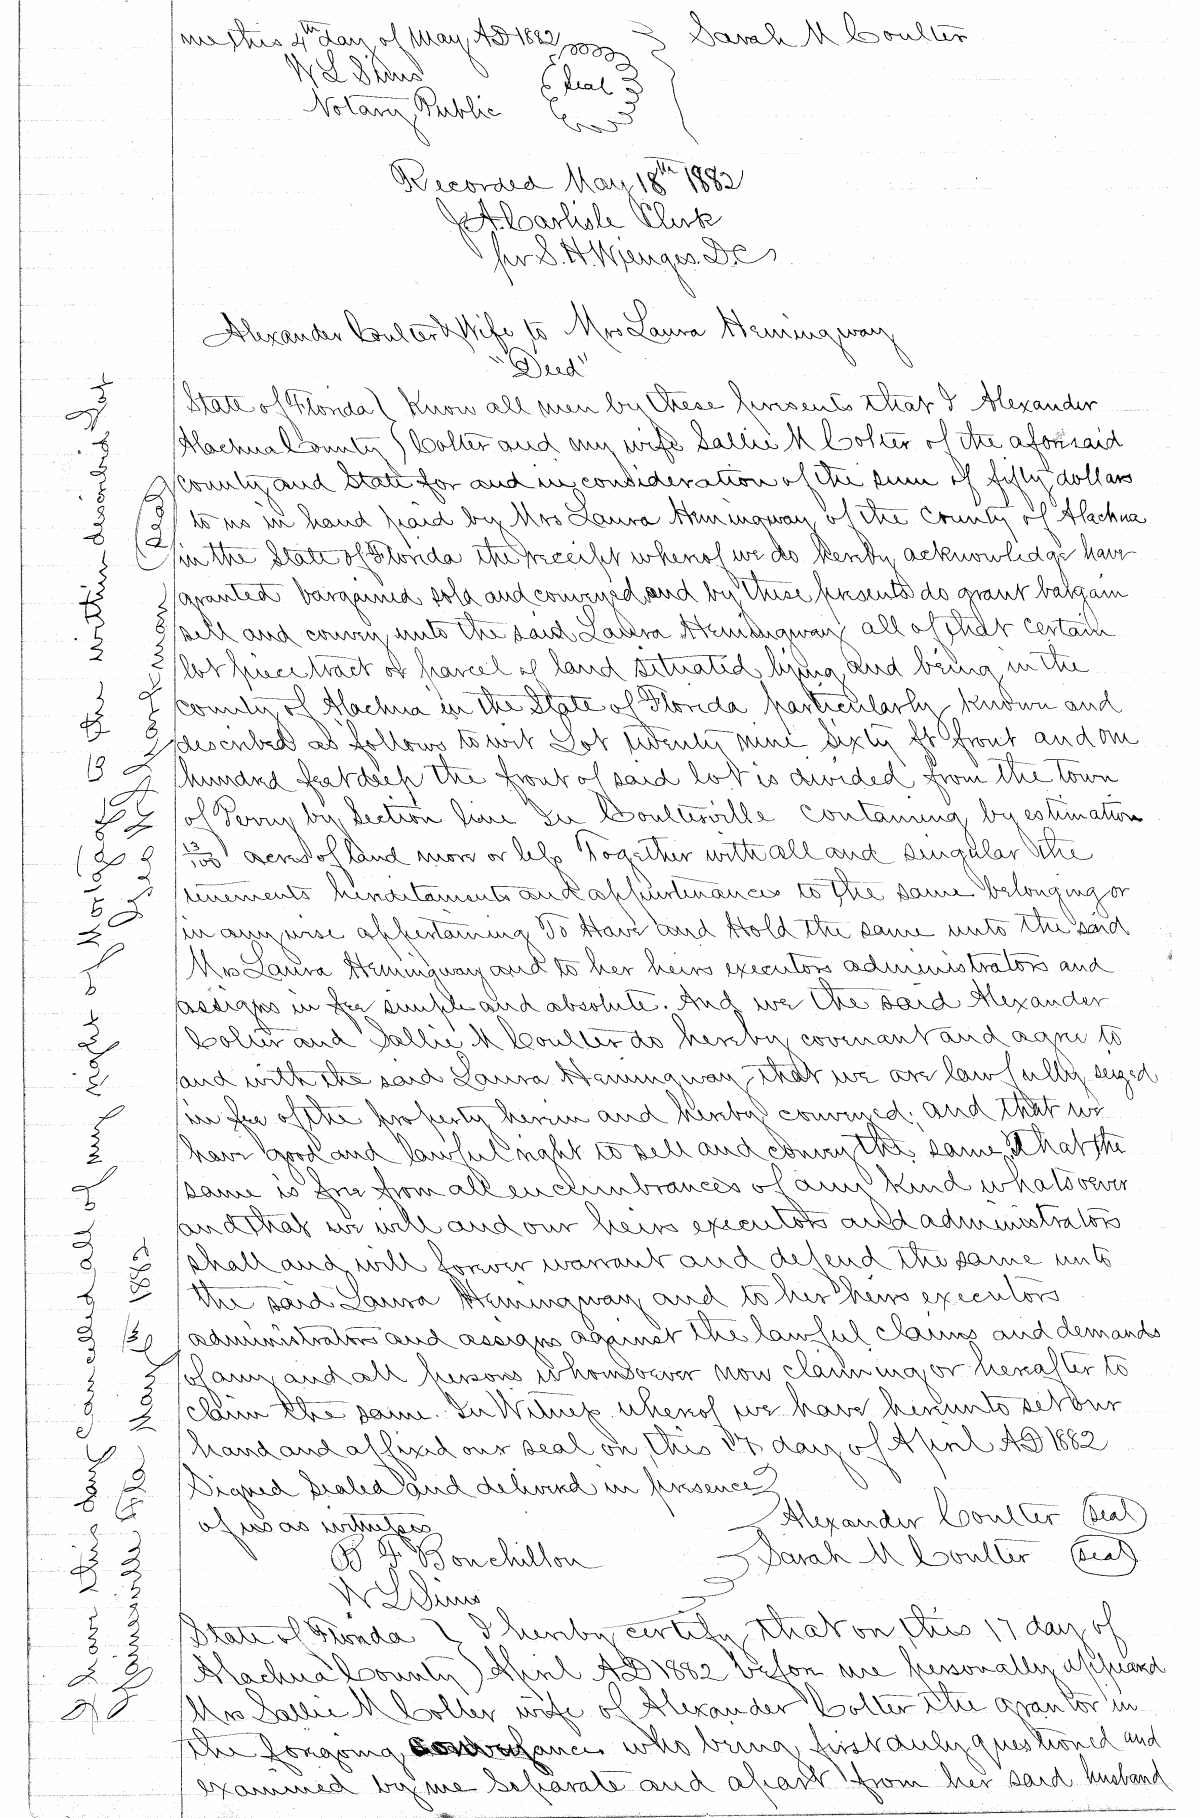 me this 4th day of May AD 1882 Sarah M Coulter
W L Sims (Seal)
Notary Public
Recorded May 18th 1882
J A. Carlisle Clerk
pr S. H. Wienges. D.C
Alexander Coulter & Wife to Mrs Laura Hemingway
"Deed"
State of Florida ( Know all men by these presents that I Alexander
Alachua County ) Colter and my wife Sallie M Colter of the aforesaid
county and State for and in consideration of the sum of fifty dollars
to us in hand paid by Mrs Laura Hemingway of the County of Alachua
in the State of Florida the receipt whereof we do hereby acknowledge have
granted bargained sold and conveyed and by these presents do grant bargain
sell and convey unto the said Laura Hemingway all of that certain
lot piece tract or parcel of land situated lying and being in the
county of Alachua in the State of Florida particularly known and
described as follows to wit Lot twenty nine sixty ft front and one
hundred feet deep the front of said lot is divided from the town
of Perry by Section line In Coulterville containing by estimation
13/100 acres of land more or less Together with all and singular the
tenements hereditaments and appurtenances to the same belonging or
in any wise appertaining To Have and Hold the same unto the said
Mrs Laura Hemingway and to her heirs executors administrators and
assigns in fee simple and absolute. And we the said Alexander
Colter and Sallie M Coulter do hereby covenant and agree to
and with the said Laura Hemingway that we are lawfully seized
in fee of the property herein and hereby conveyed; and that we
have good and lawful right to sell and convey the same, that the
same is free from all encumbrances of any kind whatsoever
and that we will and our heirs executors and administrators
shall and will forever warrant and defend the same unto
the said Laura Hemingway and to her heirs executors
administrators and assigns against the lawful claims and demands
of any and all persons whomsoever now claiming or hereafter to
claim the same. In Witness whereof we have hereunto set our
hand and affixed our seal on this 17 day of April AD 1882
Signed Sealed and delivered in presence
of us as witnesses Alexander Coulter (seal)
B F Bonchillon Sarah M Coulter (seal)
W L Sims
State of Florida } I hereby certify that on this 17 day of
Alachua County ) April AD 1882 before me personally appeared
Mrs Sallie M Colter wife of Alexander Colter the grantor in
the forgoing conveyance who being first duly questioned and
examined by me separate and apart from her said husband